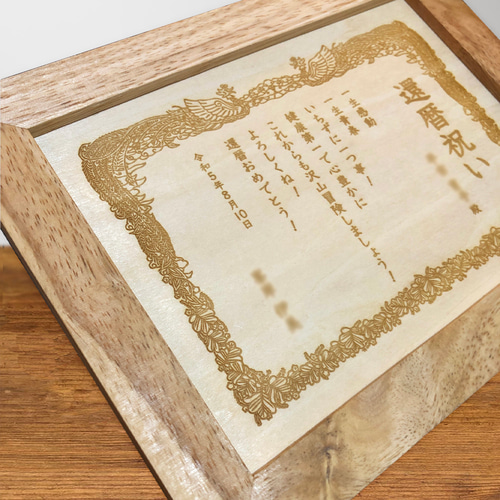 還暦祝い
様
一生感動
一生青春
いちずに一つ事!
健康第一で心豊かに
これからも沢山冒険しましょう!
よろしくね!
還暦おめでとう!
令和5年8月10日